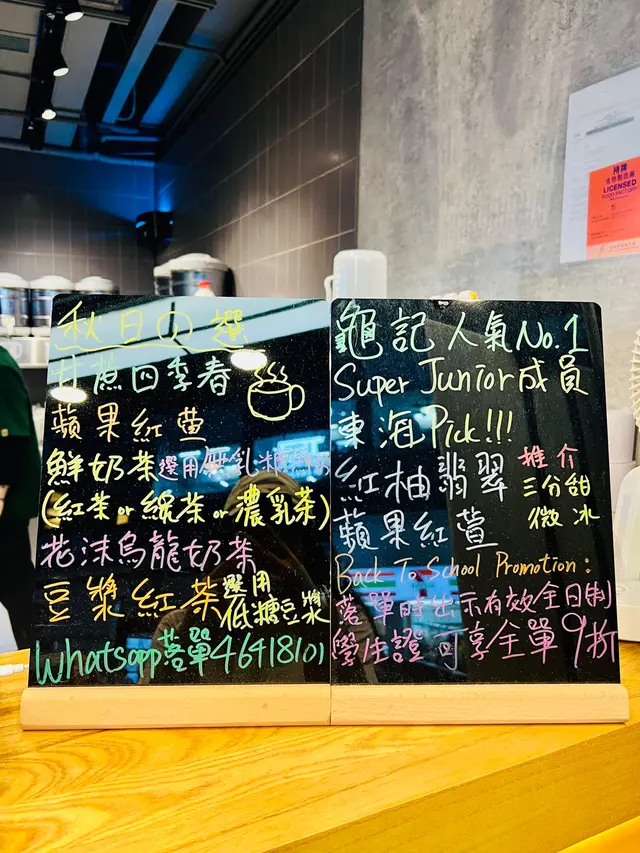 秋日の選
甘蔗四季春
蘋果紅萱
鮮奶茶選用無乳糖鮮奶
(紅茶or綠茶or濃乳茶)
花沫烏龍奶茶
豆漿紅茶選用低糖豆漿
Whatsapp落單46418101
龜記人氣No.1
Super Junior成員
東海Pick!!!
紅柚翡翠
蘋果紅萱
推介
三分甜
微冰
Back To School Promotion:
落單時出示有效全日制
學生證可享全單9折
LICENSED
FOOD FACTORY